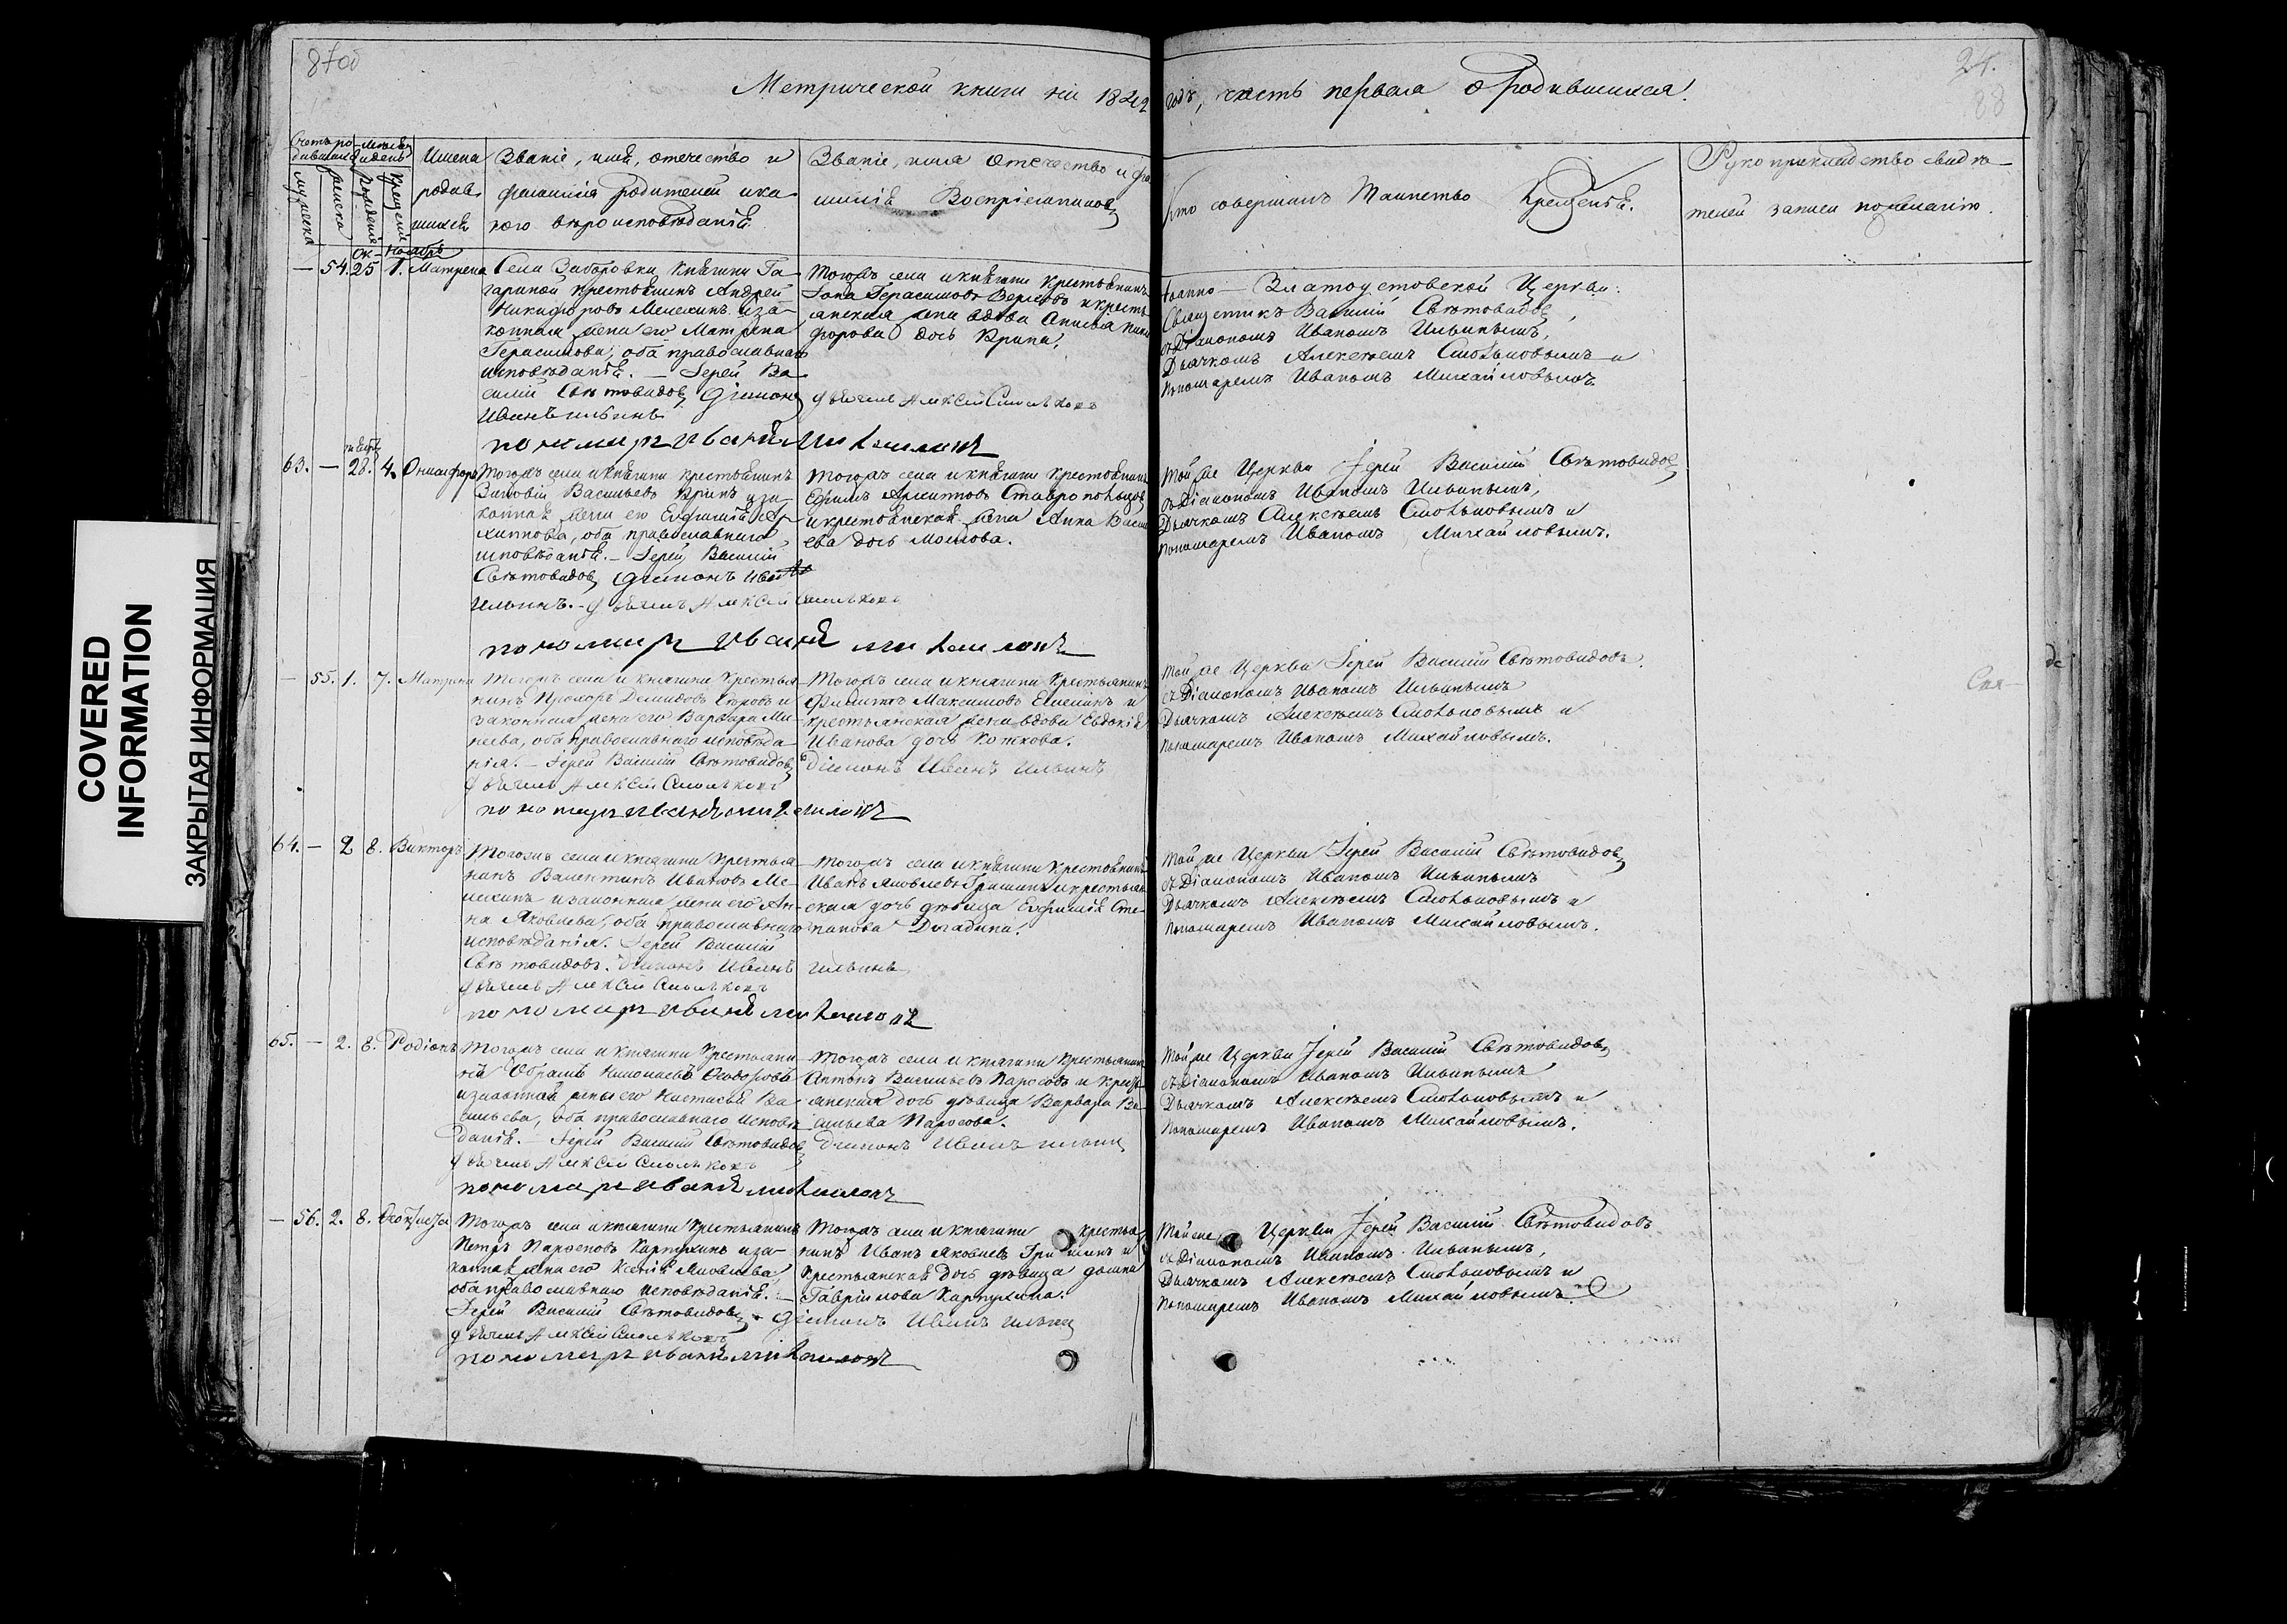 87об
24.
88
Метрической книги на 1842 годъ, часть первая о родившихся.
Счетъ ро-
дившихся
Мѣсяцъ
и день
мужеска
женска
рожденія
крещенія
Имена
родив-
шихся
Званіе, имя, отечество и
фамилія родителей и ка-
кого вѣроисповѣданія.
Званіе, имя отечество и фа
милія Воспріемниковъ
Кто совершилъ Таинство Крещенія.
Рукоприкладство свидѣ-
телей записи по желанію.
Ок- Ноябрь
— 54. 25 1. Матрена
Села Заборовки Княгини Га-
гариной крестьянинъ Андрей
Никифоровъ и за-
конная жена его Матрена
Герасимова, оба православнаго
исповѣданія. — Іерей Ва-
силій Свѣтовидовъ Діаконъ
Иванъ Ильинъ
пономарь Иванъ Михаиловъ
Тогожъ села и княгини крестьянинъ
Герасимовъ и кресть
янская жена вдова Ники
форова дочь
Дьячекъ Алексѣй Смольковъ
Іоанно-Златоустовской Церкви:
Священникъ Василій Свѣтовидовъ,
съ Діакономъ Иваномъ Ильинымъ,
Дьячкомъ Алексѣемъ Смольковымъ и
Пономаремъ Иваномъ Михайловымъ.
63. — 28. 4. Онисифоръ
Тогожъ села и княгини крестьянинъ
Зиновій Васильевъ и за-
конная жена его Евфимія Ар-
хиппова, оба православнаго
исповѣданія. — Іерей Василій
Свѣтовидовъ Діаконъ Иванъ
Ильинъ. — Дьячекъ Алексѣй Смольковъ
пономарь Иванъ Михаиловъ
Тогожъ села и княгини крестьянинъ
Ефимъ
и крестьянская жена Анна Василь
ева дочь
Той же Церкви Іерей Василій Свѣтовидовъ
съ Діакономъ Иваномъ Ильинымъ,
Дьячкомъ Алексѣемъ Смольковымъ и
Пономаремъ Иваномъ Михайловымъ.
— 55. 1. 7. Матрена
Тогожъ села и княгини Крестья
нинъ Прохоръ Демидовъ и
законная жена его Варвара Ми-
неева, оба православнаго исповѣда-
нія. — Іерей Василій Свѣтовидовъ
Дьячекъ Алексѣй Смольковъ
пономарь Иванъ Михаиловъ
Тогожъ села и княгини Крестьянинъ
Филиппъ Максимовъ и
крестьянская жена вдова Евдокія
Иванова дочь Коткова.
Діаконъ Иванъ Ильинъ
Той же Церкви Іерей Василій Свѣтовидовъ.
съ Діакономъ Иваномъ Ильинымъ
Дьячкомъ Алексѣемъ Смольковымъ и
Пономаремъ Иваномъ Михайловымъ.
64. — 2 8. Викторъ
Тогожъ села и княгини Крестья
нинъ Валентинъ Ивановъ
и законная жена его Ан-
на Яковлева, оба православнаго
исповѣданія. Іерей Василій
Свѣтовидовъ. Діаконъ Иванъ Ильинъ
Дьячекъ Алексѣй Смольковъ
пономарь Иванъ Михаиловъ
Тогожъ села и княгини Крестьянинъ
Иванъ Яковлевъ Гришинъ и крестьян
ская дочь дѣвица Евфимія Сте-
панова
Той же Церкви Іерей Василій Свѣтовидовъ
съ Діакономъ Иваномъ Ильинымъ
Дьячкомъ Алексѣемъ Смольковымъ и
Пономаремъ Иваномъ Михайловымъ.
65. — 2. 8. Родіонъ
Тогожъ села и княгини Крестьяни
на
и законной жены его Настасьи Ва-
сильева, оба православнаго исповѣ
данія. — Іерей Василій Свѣтовидовъ
Дьячекъ Алексѣй Смольковъ
пономарь Иванъ Михаиловъ
Тогожъ села и княгини Крестьянинъ
Антонъ Васильевъ и кресть
янская дочь дѣвица Варвара Ва
сильева
Діаконъ Иванъ Ильинъ
Той же Церкви Іерей Василій Свѣтовидовъ
съ Діакономъ Иваномъ Ильинымъ
Дьячкомъ Алексѣемъ Смольковымъ и
Пономаремъ Иваномъ Михайловымъ.
— 56. 2. 8.
Тогожъ села и княгини Крестьянинъ
Петръ Парѳеновъ Карпухинъ и за-
конная жена его Ксенія Яковлева
оба православнаго исповѣданія. —
Іерей Василій Свѣтовидовъ Діаконъ Иванъ Ильинъ
Дьячекъ Алексѣй Смольковъ
пономарь Иванъ Михаиловъ
Тогожъ села и княгини крестья
нинъ Иванъ Яковлевъ Гришинъ и
Крестьянская дочь дѣвица Домна
Гаврилова Карпухина.
Той же Церкви Іерей Василій Свѣтовидовъ
съ Діакономъ Иваномъ Ильинымъ,
Дьячкомъ Алексѣемъ Смольковымъ и
Пономаремъ Иваномъ Михайловымъ.
COVERED
INFORMATION
ЗАКРЫТАЯ ИНФОРМАЦИЯ